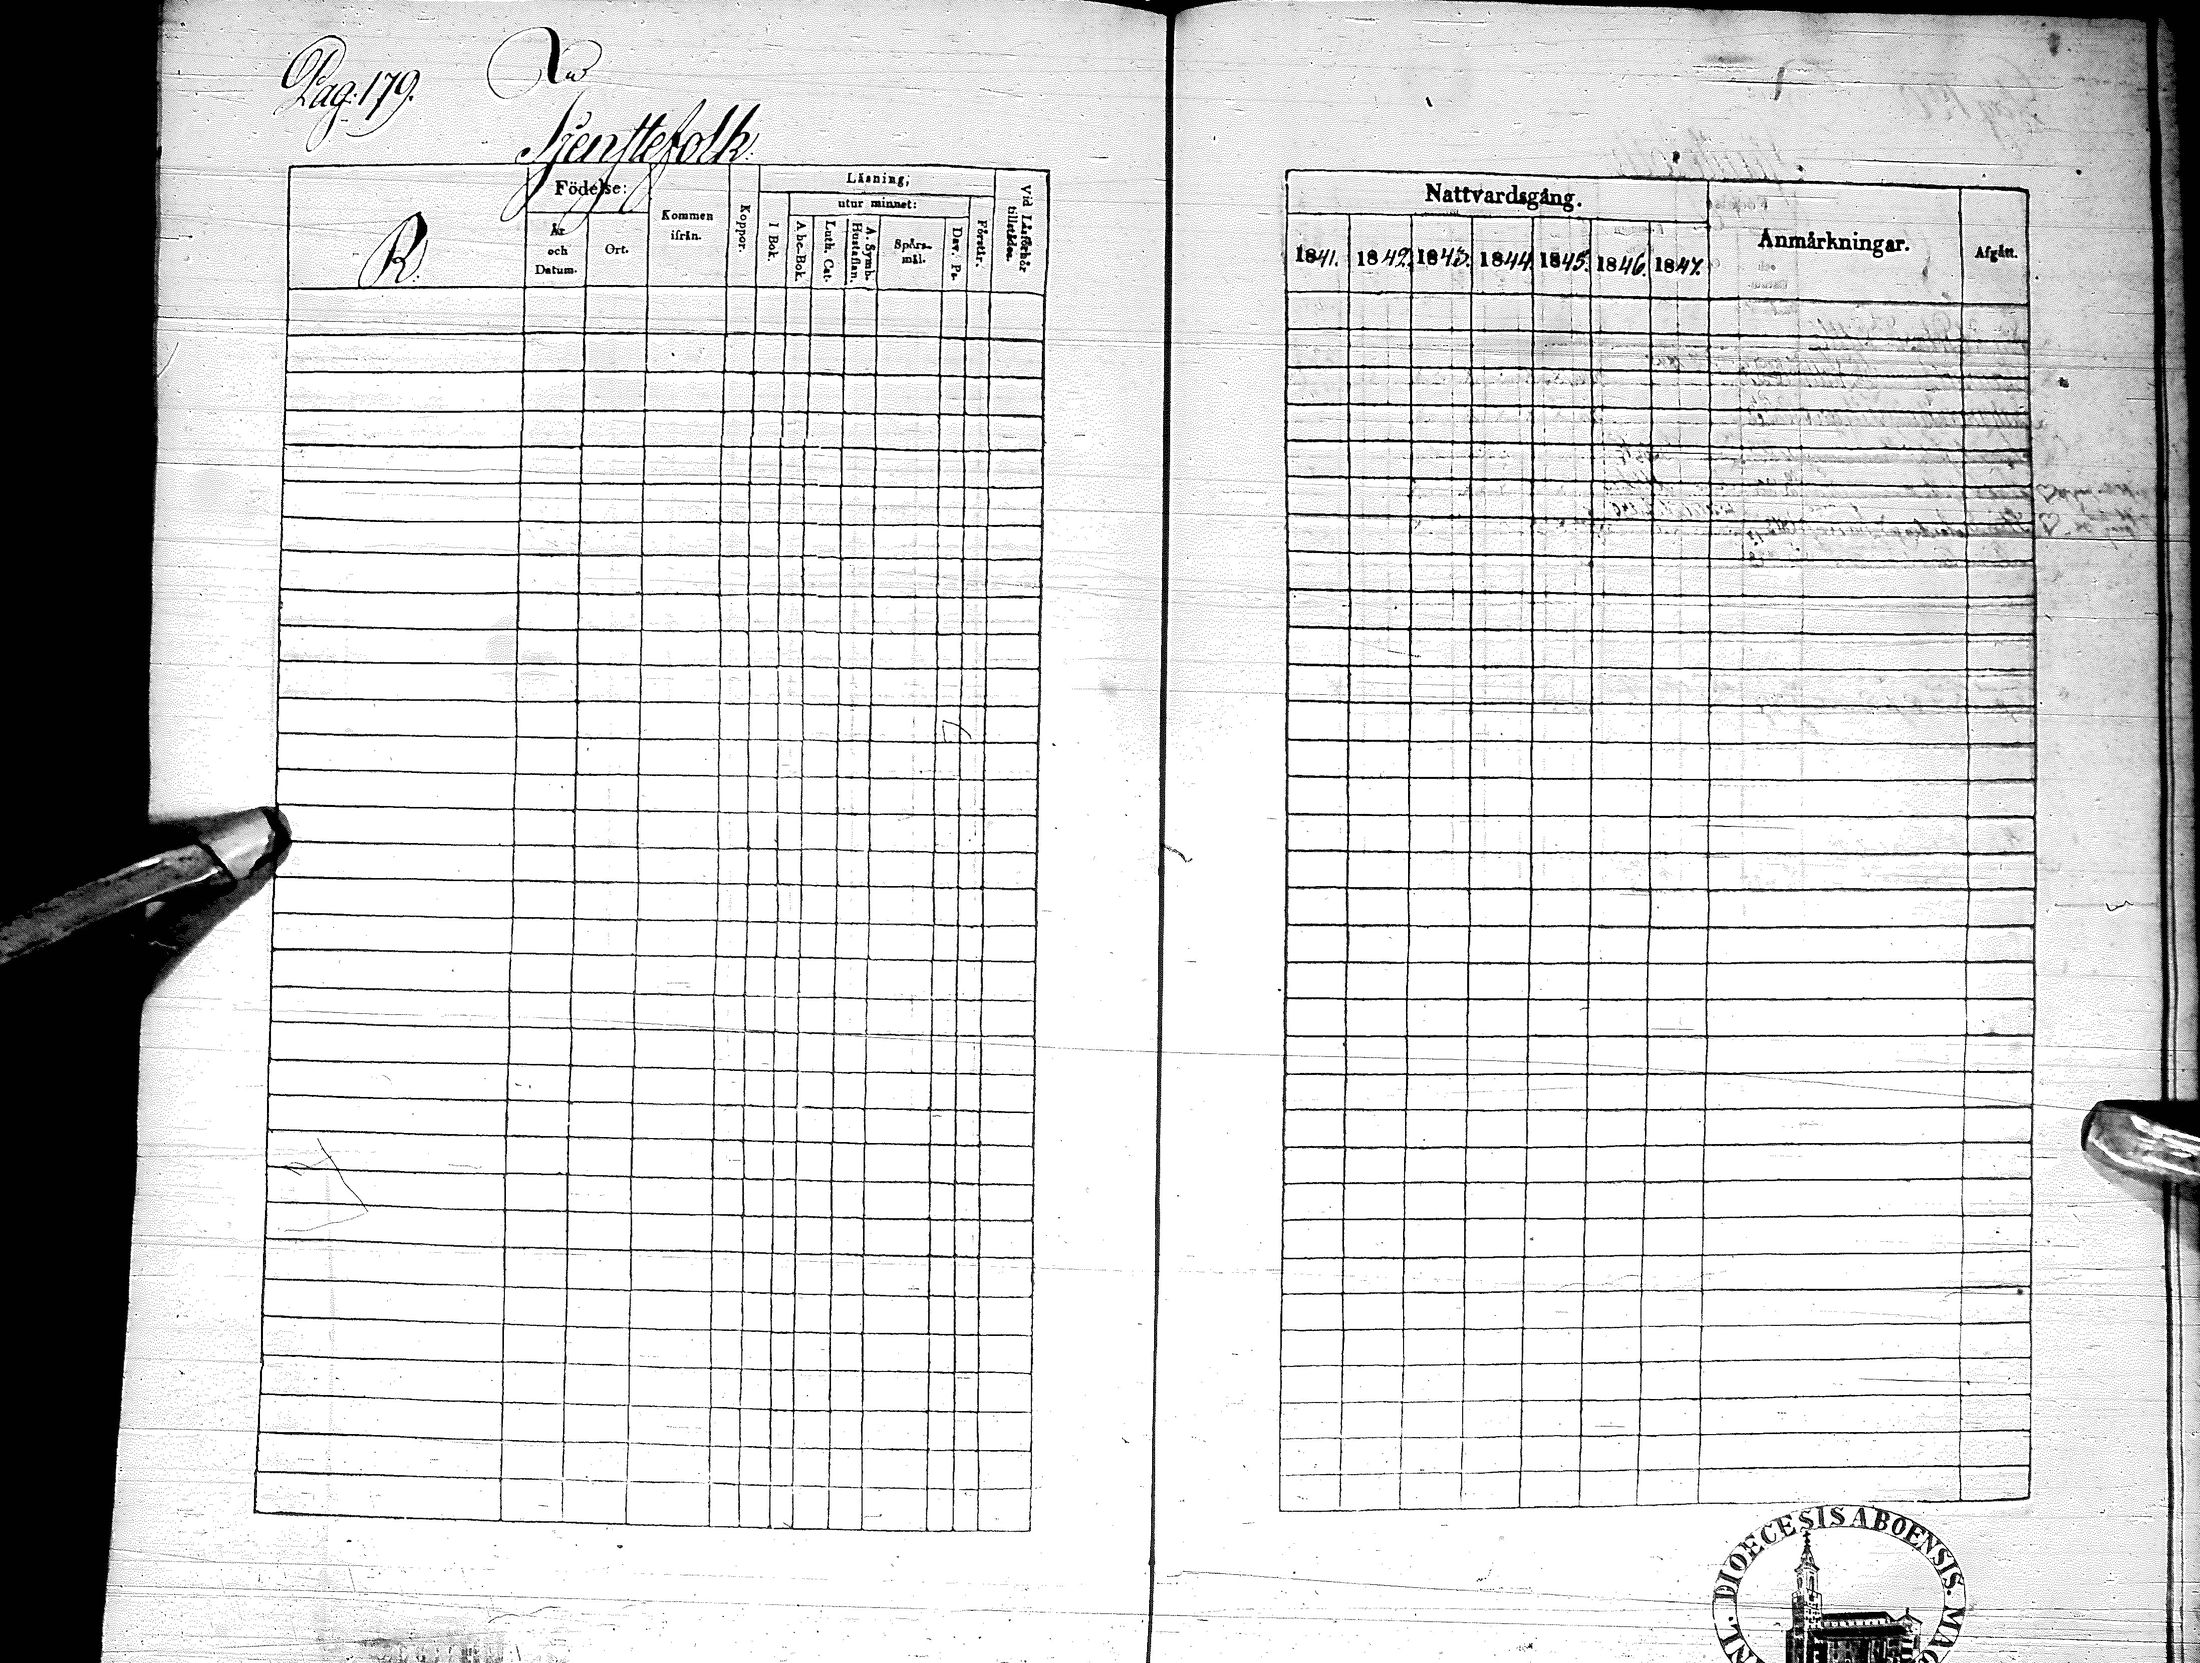 Pag: 179.
Tjenstefolk.
R.
Födelse:
År och Datum.
Ort.
Kommen ifrån.
Koppor.
Läsning;
I Bok.
utur minnet:
Abc-Bok.
Luth. Cat.
A. Symb. Hustaflan.
Spörs-mål.
Dav. Ps.
Förstår.
Vid Läsförhör tillstädes.
Nattvardsgång.
1841.
1842.
1843.
1844.
1845.
1846.
1847.
Anmärkningar.
Afgått.
DIOECESIS ABOENSIS.